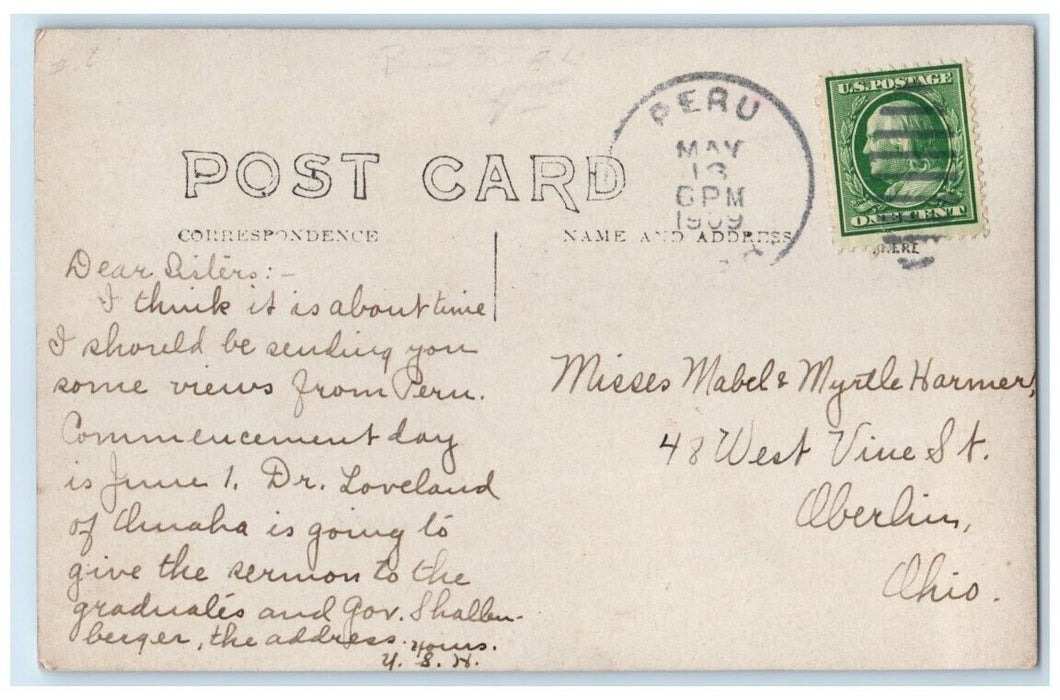 POST CARD
CORRESPONDENCE
NAME AND ADDRESS
HERE
PERU
MAY
13
6 PM
1909
U.S. POSTAGE
ONE CENT
Dear Sisters:-
I think it is about time
I should be sending you
some views from Peru.
Commencement day
is June 1. Dr. Loveland
of Omaha is going to
give the sermon to the
graduates and Gov. Shallen-
berger, the address. Yours.
Y. S. H.
Misses Mabel & Myrtle Harmer,
48 West Vine St.
Oberlin,
Ohio.